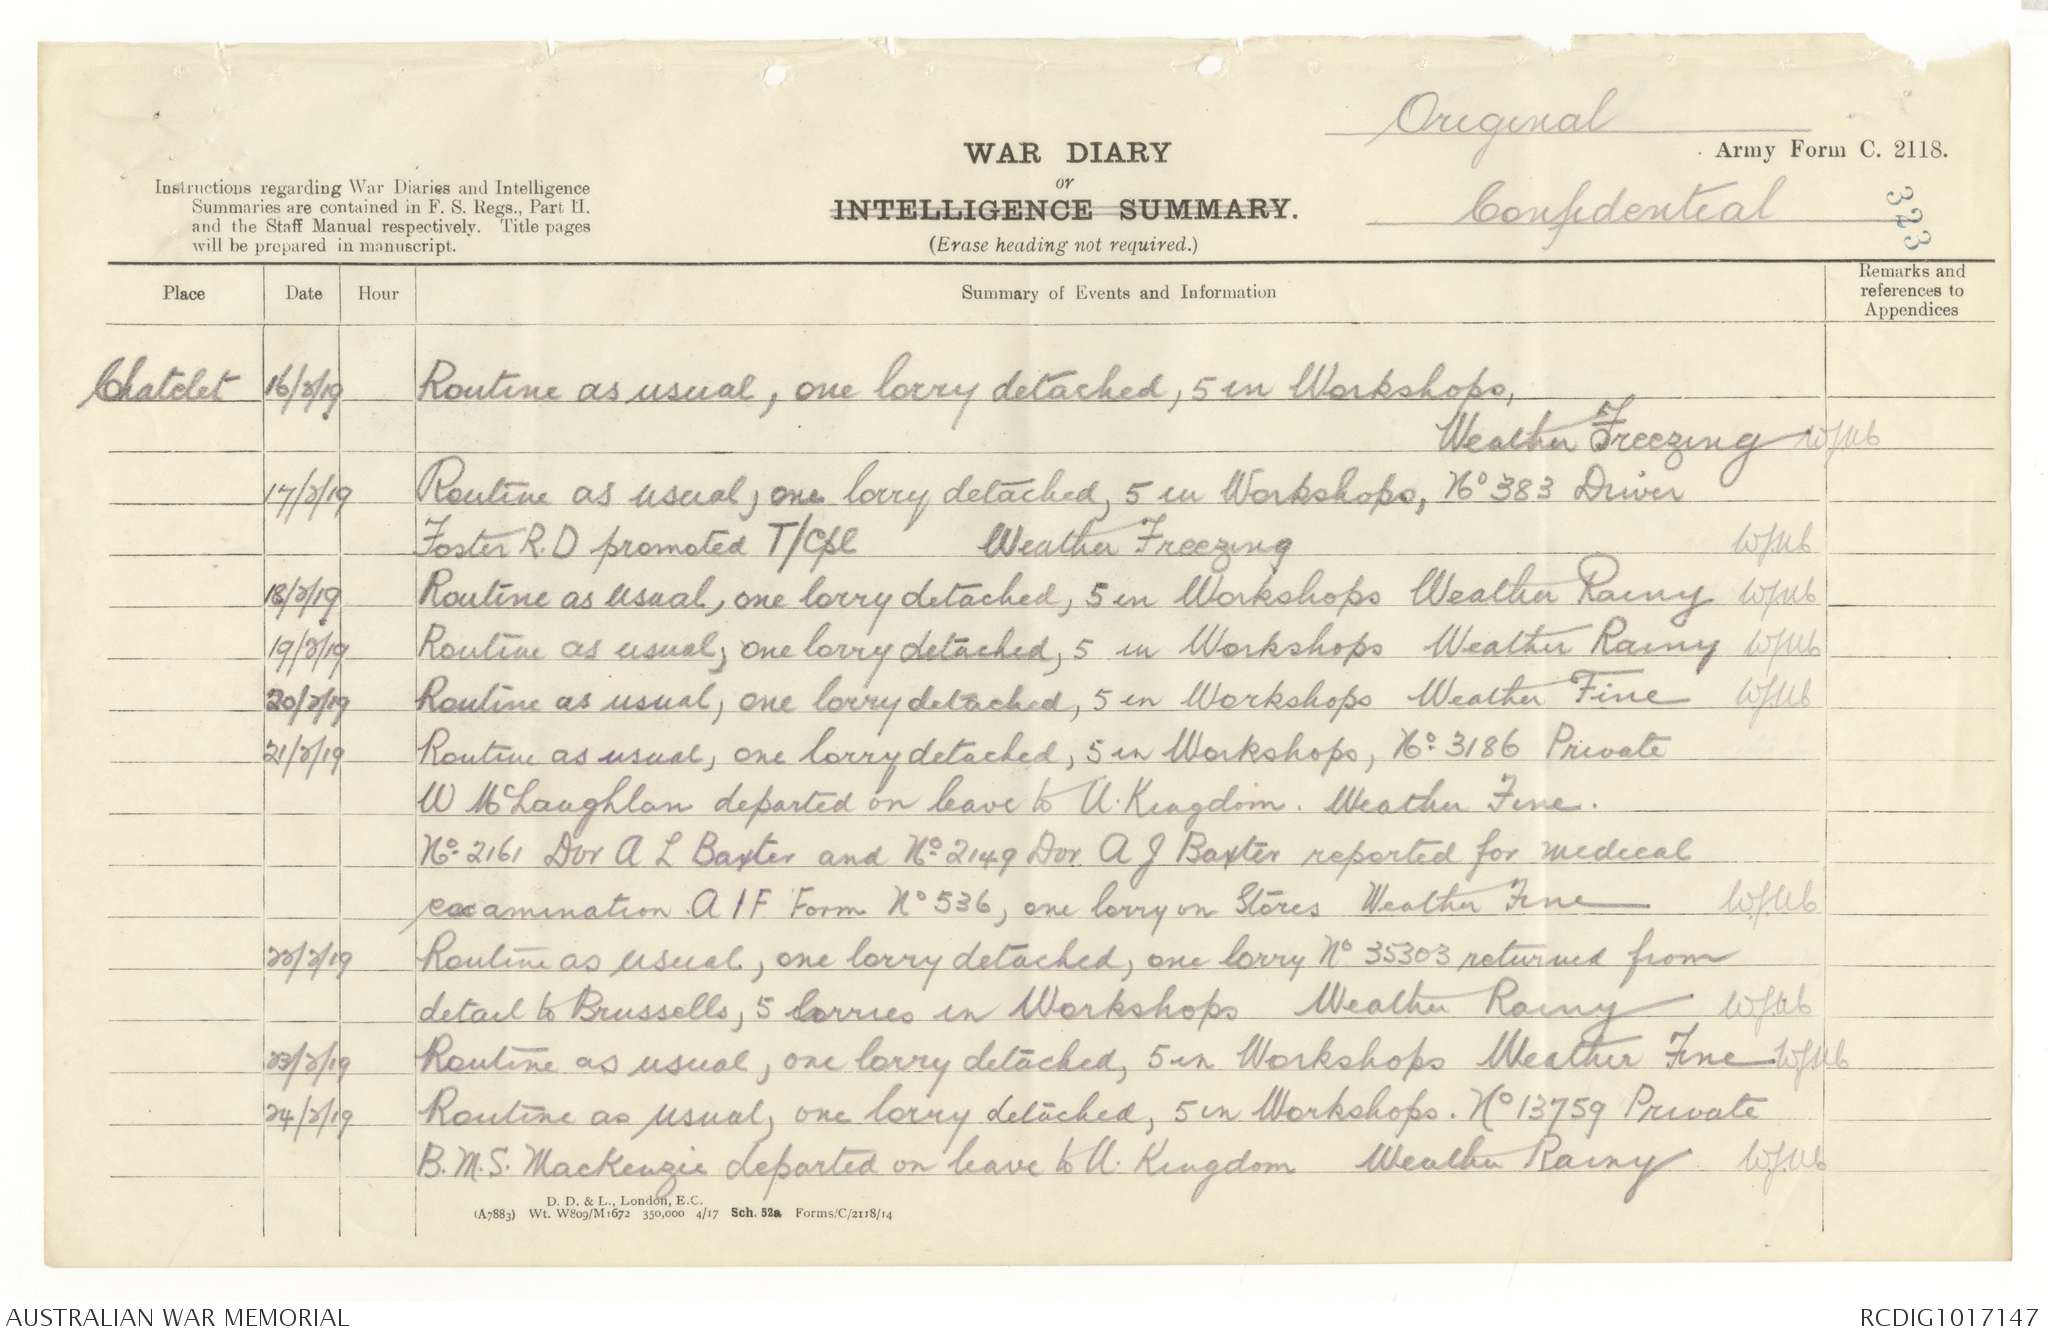 Original
WAR DIARY
Army Form C. 2118.
or
Instructions regarding War Diaries and Intelligence
Summaries are contained in F. S. Regs., Part II.
and the Staff Manual respectively. Title pages
will be prepared in manuscript.
INTELLIGENCE SUMMARY.
Confidential
323
(Erase heading not required.)
Place Date Hour Summary of Events and Information Remarks and
references to
Appendices
Chatelet 16/2/19 Routine as usual, one lorry detached, 5 in Workshops,
Weather Freezing
17/2/19 Routine as usual, one lorry detached, 5 in Workshops, No 383 Driver
Foster R. D promoted T/Cpl Weather Freezing
18/2/19 Routine as usual, one lorry detached, 5 in Workshops Weather Rainy
19/2/19 Routine as usual, one lorry detached, 5 in Workshops Weather Rainy
20/2/19 Routine as usual, one lorry detached, 5 in Workshops Weather Fine
21/2/19 Routine as usual, one lorry detached, 5 in Workshops, No. 3186 Private
W McLaughlan departed on leave to U. Kingdom. Weather Fine.
No. 2161 Dvr A L Baxter and No. 2149 Dvr A J Baxter reported for medical
examination A I F Form No 536, one lorry on Stores Weather Fine
22/2/19 Routine as usual, one lorry detached, one lorry No 35303 returned from
detail to Brussells, 5 lorries in Workshops Weather Rainy
23/2/19 Routine as usual, one lorry detached, 5 in Workshops Weather Fine
24/2/19 Routine as usual, one lorry detached, 5 in Workshops. No 13759 Private
B. M. S. MacKenzie departed on leave to U. Kingdom Weather Rainy
D. D. & L., London, E.C.
(A7883) Wt. W809/M1672 350,000 4/17 Sch. 52a Forms/C/2118/14
AUSTRALIAN WAR MEMORIAL
RCDIG1017147